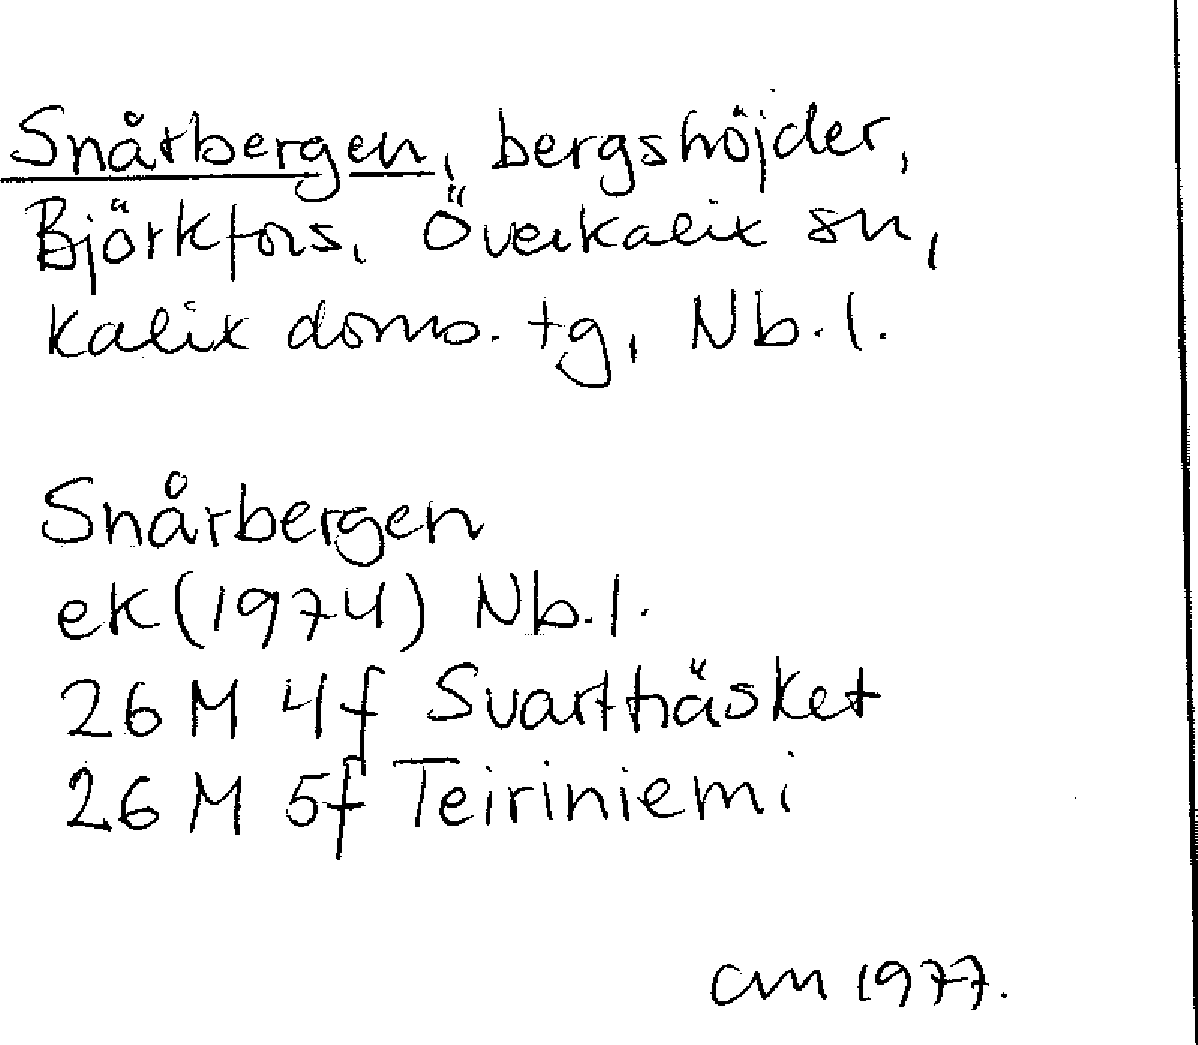 Snårbergen, bergshöjder,
Björkfors, Överkalix sn,
Kalix doms. tg, Nb.l.
Snårbergen
ek (1974) Nb.l.
26 M 4f Svartträsket
26 M 5f Teiriniemi
CM 1977.